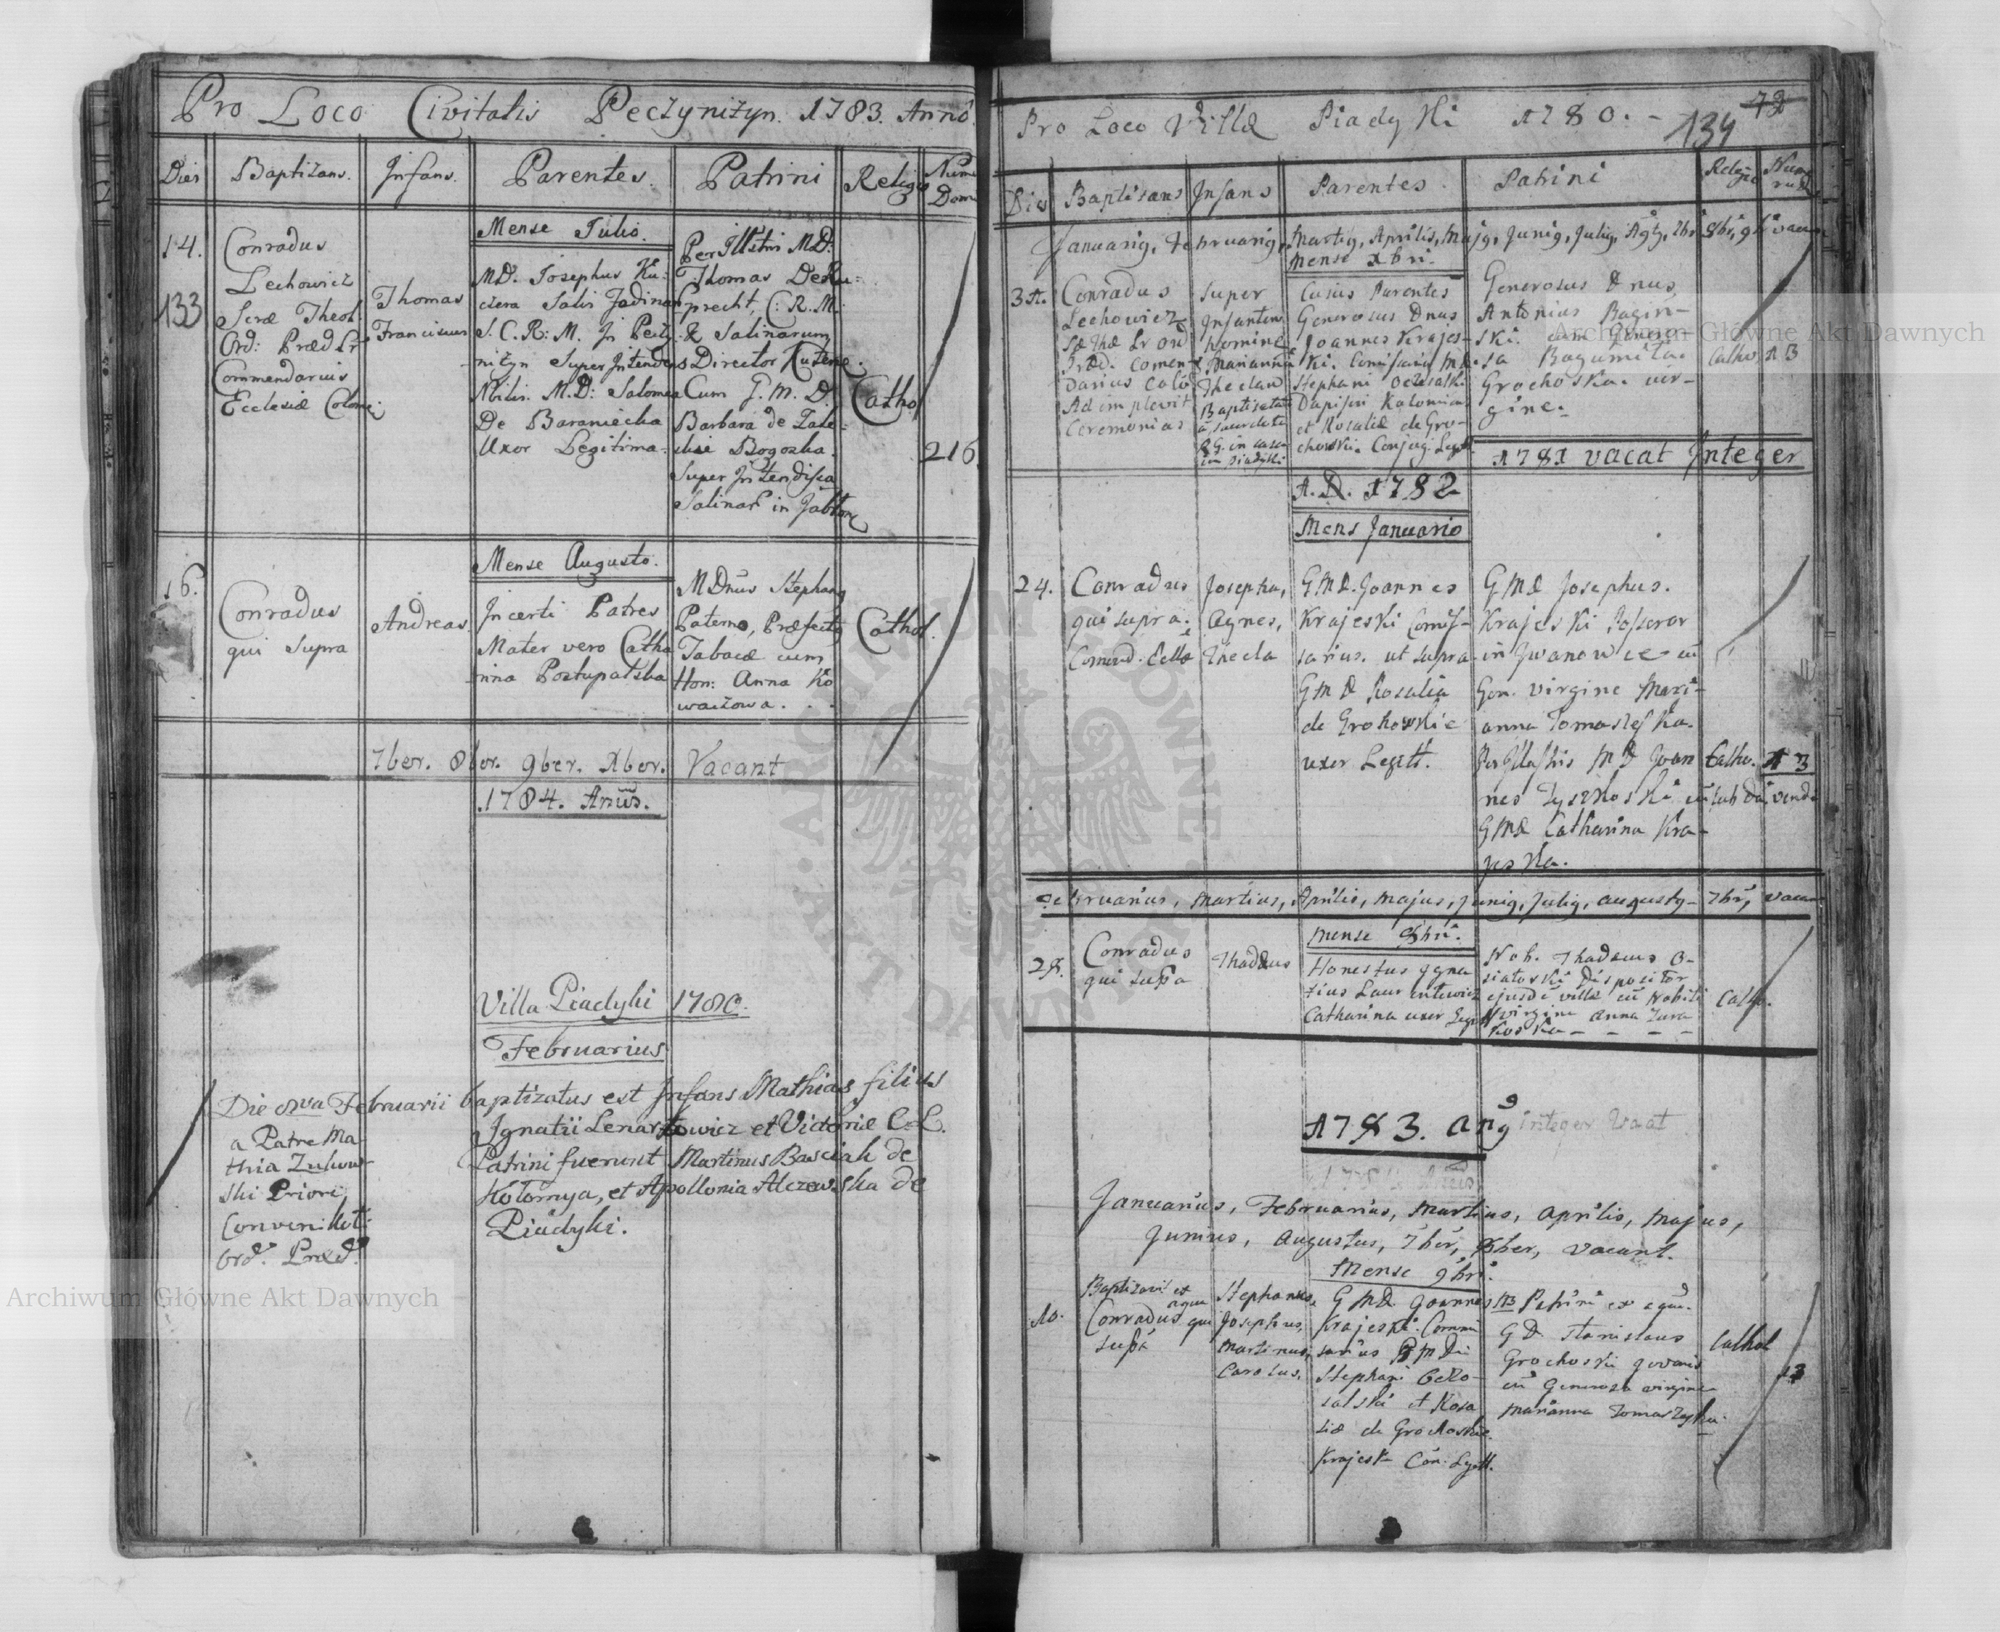 Pro Loco Civitatis Peczynizyn. 1783. Anno.
Dies
Baptizans.
Infans.
Parentes.
Patrini
Religio
Num: Dom:
Mense Julio.
14.
133
Conradus
Lechowicz
Scræ Theol.
Ord: Præd Lr
Commendarius
Ecclesiæ Colome:
Thomas
Franciscus
MD. Josephus Ku=
czera Salis
S.C.R.M. In Pecz
nizyn Super Intendens
Nbilis. M.D: Salomea
De Baraniecka
Uxor Legitima.
Per Illstris MD:
Thomas De Ru=
precht, C.R.M.
Salinarum
Director Kutens.
Cum G. M. D.
Barbara de Zale=
skie Bogozka.
Super Intendissa
Salinar in Jablon
Cathol
216
Mense Augusto.
16.
Conradus
qui supra
Andreas
Incerti Patres
Mater vero Catha
rina Postupalska
MDnus Stephanus
Paterno, Præfectus
Tabacæ cum
Hon: Anna Ko
walowa . .
Cathol.
7ber. 8ber. 9ber. Xber. Vacant
1784. Annus.
Villa Piadyki 1780.
Februarius
Die 8va Februarii baptizatus est Infans Mathias filius
a Patre Ma-
thia Zukow-
ski Priori
Conven: Kut:
Ord. Præd.
Ignatii Lenartowicz et Victoriæ C.L.
Patrini fuerunt Martinus Basciak de
Kołomya, et Apollonia Alczewska de
Piadyki.
Pro Loco Villæ Piadyki 1780. -
134
72
Dies
Baptisans
Infans
Parentes.
Patrini
Religio
Nume rus
Januarig, Februarig, Martig, Aprilis, Majg, Junig, Julig, Agtg, 7br 8br, 9br vacant
Mense Xbri.
31.
Conradus
Lechowicz
Sæ Thæ Lr Ord
Præd. Comen-
darius Colo
Adimplevit
Ceremonias
super
Infantem
nomine
Mariannā
Theclam
Baptisatam
a sacerdote
R.G. in casu
in Piadyki
Cujus Parentes
Generosus Dnus
Joannes Krajes-
ki. Comisariq MD
Stephani
Dapiferi Kolomien
et Rosaliæ de Gro-
chowskie Conjug. Legit
Generosus Dnus
Antonius Bagin-
ski. cum Genero-
sa Bagumiła
Grochoska. vir-
gine.
Catho.
13
1781 vacat Integer
A.D. 1782
Mens Januario
24.
Conradus
qui supra.
Comend. Ecclæ
Josepha,
Agnes,
Thecla
GMD. Joannes
Krajeski Comis-
sarius. ut supra
GMD Rosalia
de Grokowskie
uxor Legitt.
GMD Josephus.
Krajeski Possesor
in Iwanowce cū
Gen. virgine Mari-
anna Tomaszeska.
Per Illustris MD Joan
nes Tyszkoski cū
GMD Catharina Kra-
jeska.
Catho.
13
Februarius, Martius, Aprilis, Majus, Junig, Julig, Augustg- 7br, vacant
Mense 8bri.
28.
Conradus
qui supa
Thadæus
Honestus Igna
tius Laurentewicz
Catharina uxor Legit
Nob. Thadæus O-
siatoski dispositor
ejusdē villæ cū Nobili
virgine Anna Zura
koska - - - -
Catho.
1783. Ang integer Vacat
1784 Annus
Januarius, Februarius, Martius, Aprilis, Majus,
Junius, Augustus, 7br, Xber, vacant.
Mense 9bri.
10.
Baptizavit ex
aqua
Conradus qui
supa
Stephanus,
Josephus,
Martinus,
Carolus,
GMD Joannes
Krajeski. Commi
sarius GMDni
Stephani
et Rosa
liæ de Grochoskie
Krajesk Con: Legitt.
NB Patrini ex aqua.
GD Stanislaus
Grochoski juvenis
cū Generosa virgine
Marianna Tomaszeska.
Cathol
13
Archiwum Główne Akt Dawnych
Archiwum Główne Akt Dawnych
ARCHIWUM GŁÓWNE AKT DAWNYCH